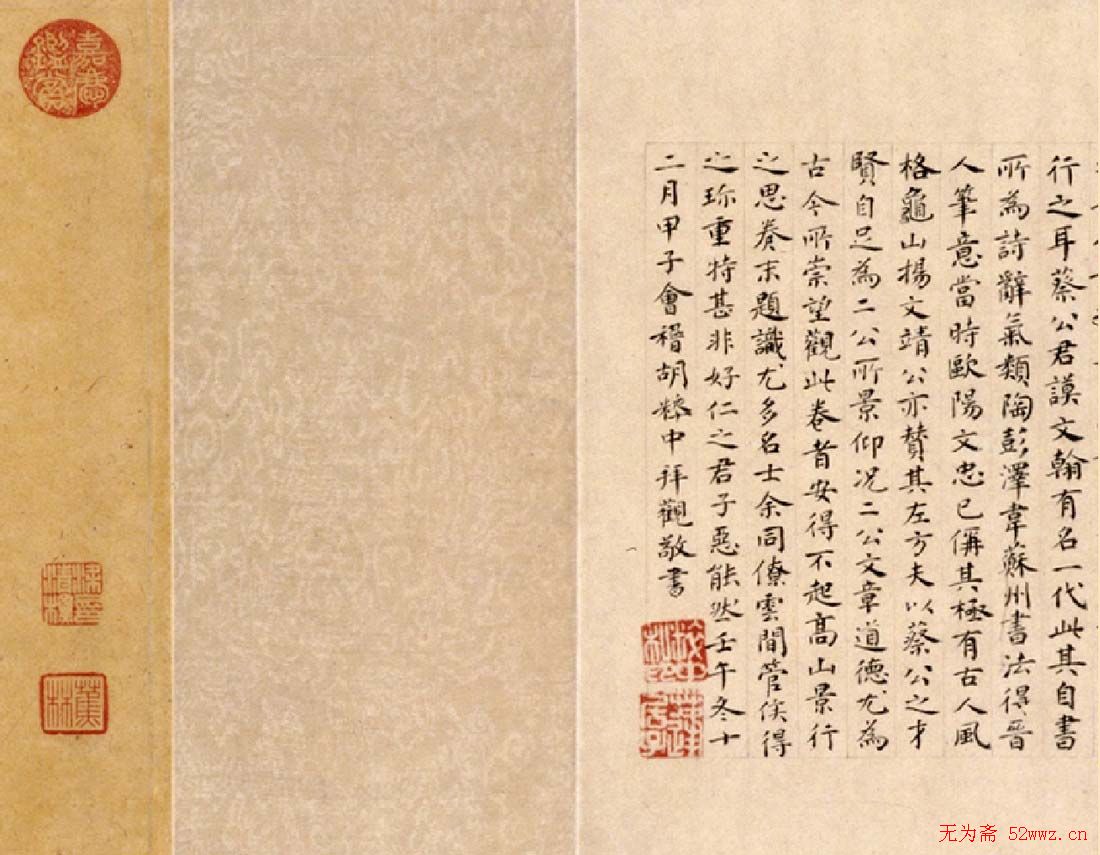 行之耳蔡公君謨文翰有名一代此其自書
所為詩辭氣類陶彭澤韋蘇州書法得晉
人筆意當時歐陽文忠已稱其極有古人風
格龜山楊文靖公亦贊其左方夫以蔡公之才
賢自足為二公所景仰况二公文章道德尤為
古今所崇望觀此卷者安得不起高山景行
之思卷末題識尤多名士余同僚雲間管侯得
之珎重特甚非好仁之君子惡能然壬午冬十
二月甲子會稽胡粹中拜觀敬書
嘉慶鑑賞
蕉林
无为斋 52wwz.cn